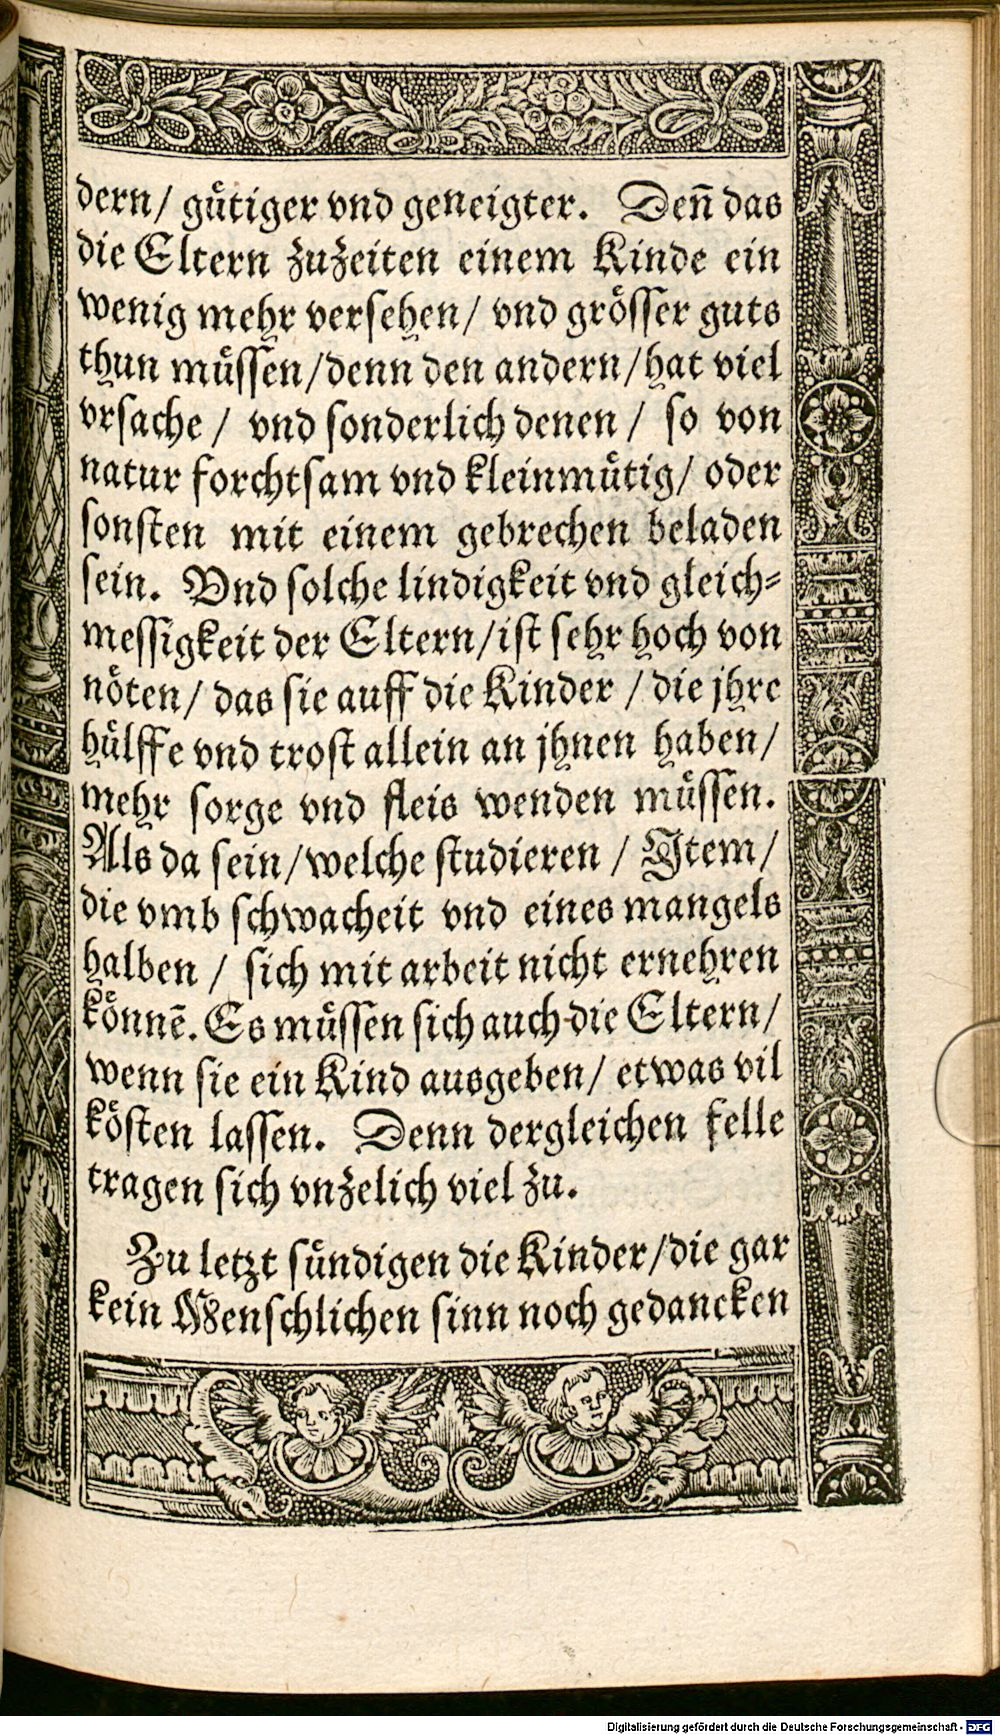 dern/ gütiger vnd geneigter. Deñ das
die Eltern zuzeiten einem Kinde ein
wenig mehr versehen/ vnd grösser guts
thun müssen/denn den andern/hat viel
vrsache/ vnd sonderlich denen/ so von
natur forchtsam vnd kleinmütig/ oder
sonsten mit einem gebrechen beladen
sein. Vnd solche lindigkeit vnd gleich-
messigkeit der Eltern/ist sehr hoch von
nöten/ das sie auff die Kinder/die jhre
hülffe vnd trost allein an jhnen haben/
mehr sorge vnd fleis wenden müssen.
Als da sein/welche studieren/ Item/
die vmb schwacheit vnd eines mangels
halben/ sich mit arbeit nicht ernehren
könnē. Es müssen sich auch die Eltern/
wenn sie ein Kind ausgeben/ etwas vil
kösten lassen. Denn dergleichen felle
tragen sich vnzelich viel zu.
Zu letzt sündigen die Kinder/die gar
kein Menschlichen sinn noch gedancken
Digitalisierung gefördert durch die Deutsche Forschungsgemeinschaft - DFG